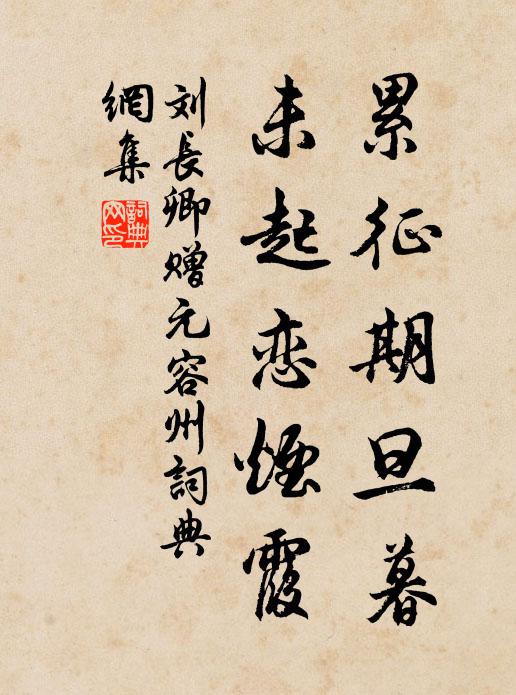 累征期旦暮
未起恋煙霞
刘長卿赠元容州詞典
網集
詞典
网印